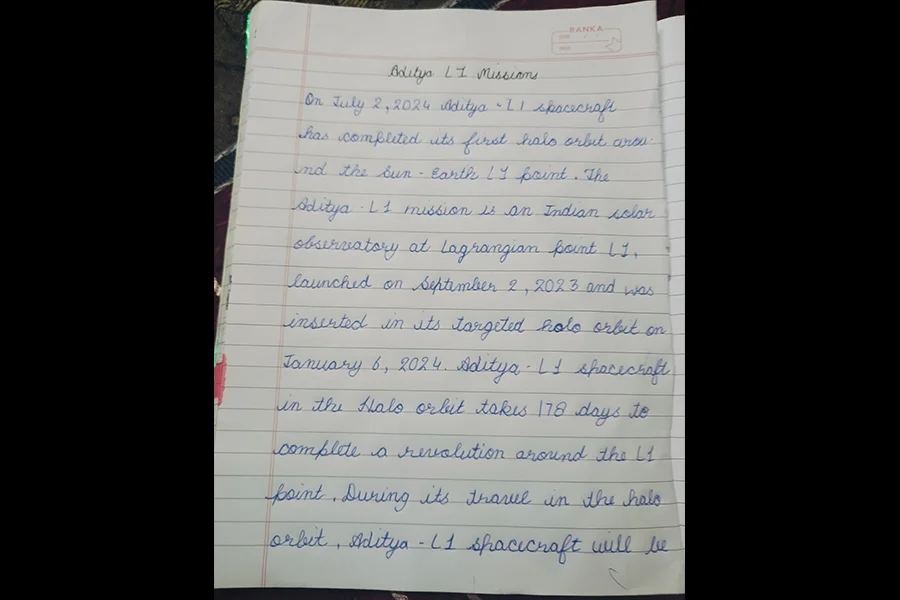 RANKA
DATE / /
PAGE
Aditya L1 Missions
On July 2, 2024 Aditya - L1 spacecraft
has completed its first halo orbit arou-
nd the Sun - Earth L1 point. The
Aditya - L1 mission is an Indian solar
observatory at Lagrangian point L1,
launched on September 2, 2023 and was
inserted in its targeted halo orbit on
January 6, 2024. Aditya - L1 spacecraft
in the Halo orbit takes 178 days to
complete a revolution around the L1
point. During its travel in the halo
orbit, Aditya - L1 spacecraft will be